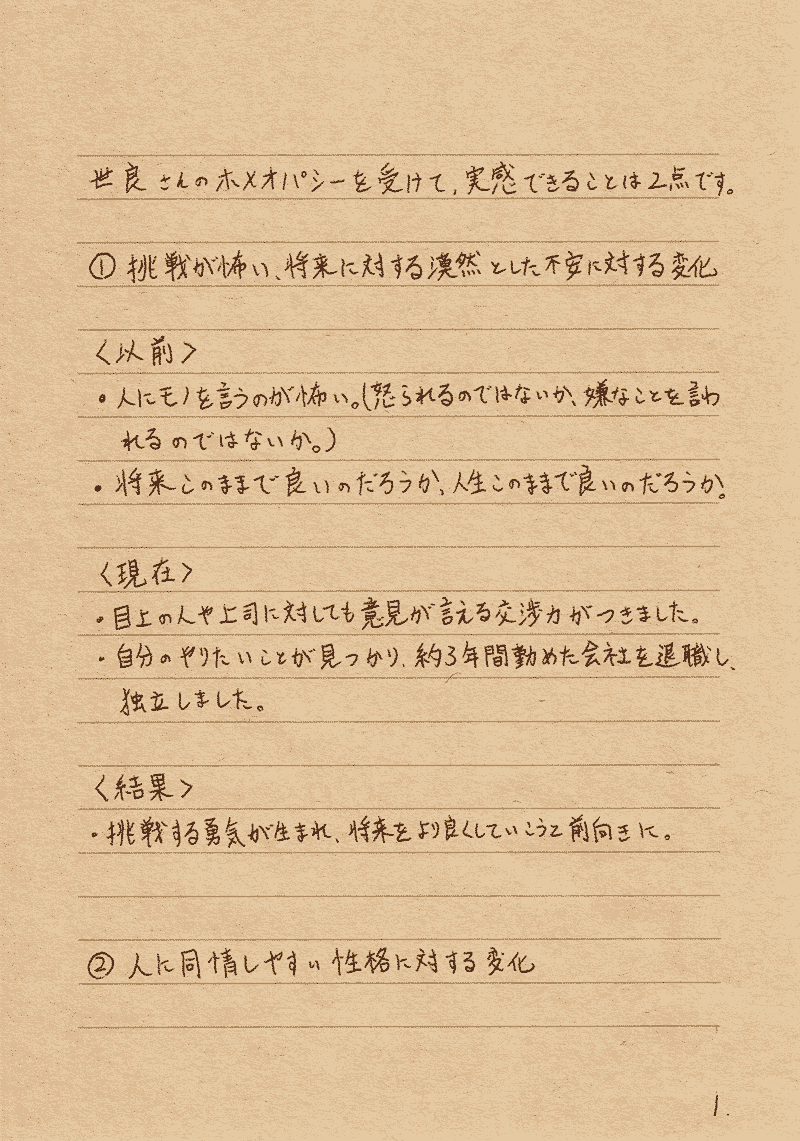 世良さんのホメオパシーを受けて、実感できることは2点です。
① 挑戦が怖い、将来に対する漠然とした不安に対する変化
〈以前〉
・人にモノを言うのが怖い。(怒られるのではないか、嫌なことを言わ
れるのではないか。)
・将来このままで良いのだろうか、人生このままで良いのだろうか。
〈現在〉
・目上の人や上司に対しても意見が言える交渉力がつきました。
・自分のやりたいことが見つかり、約3年間勤めた会社を退職し、
独立しました。
〈結果〉
・挑戦する勇気が生まれ、将来をより良くしていこうと前向きに。
② 人に同情しやすい性格に対する変化
1.